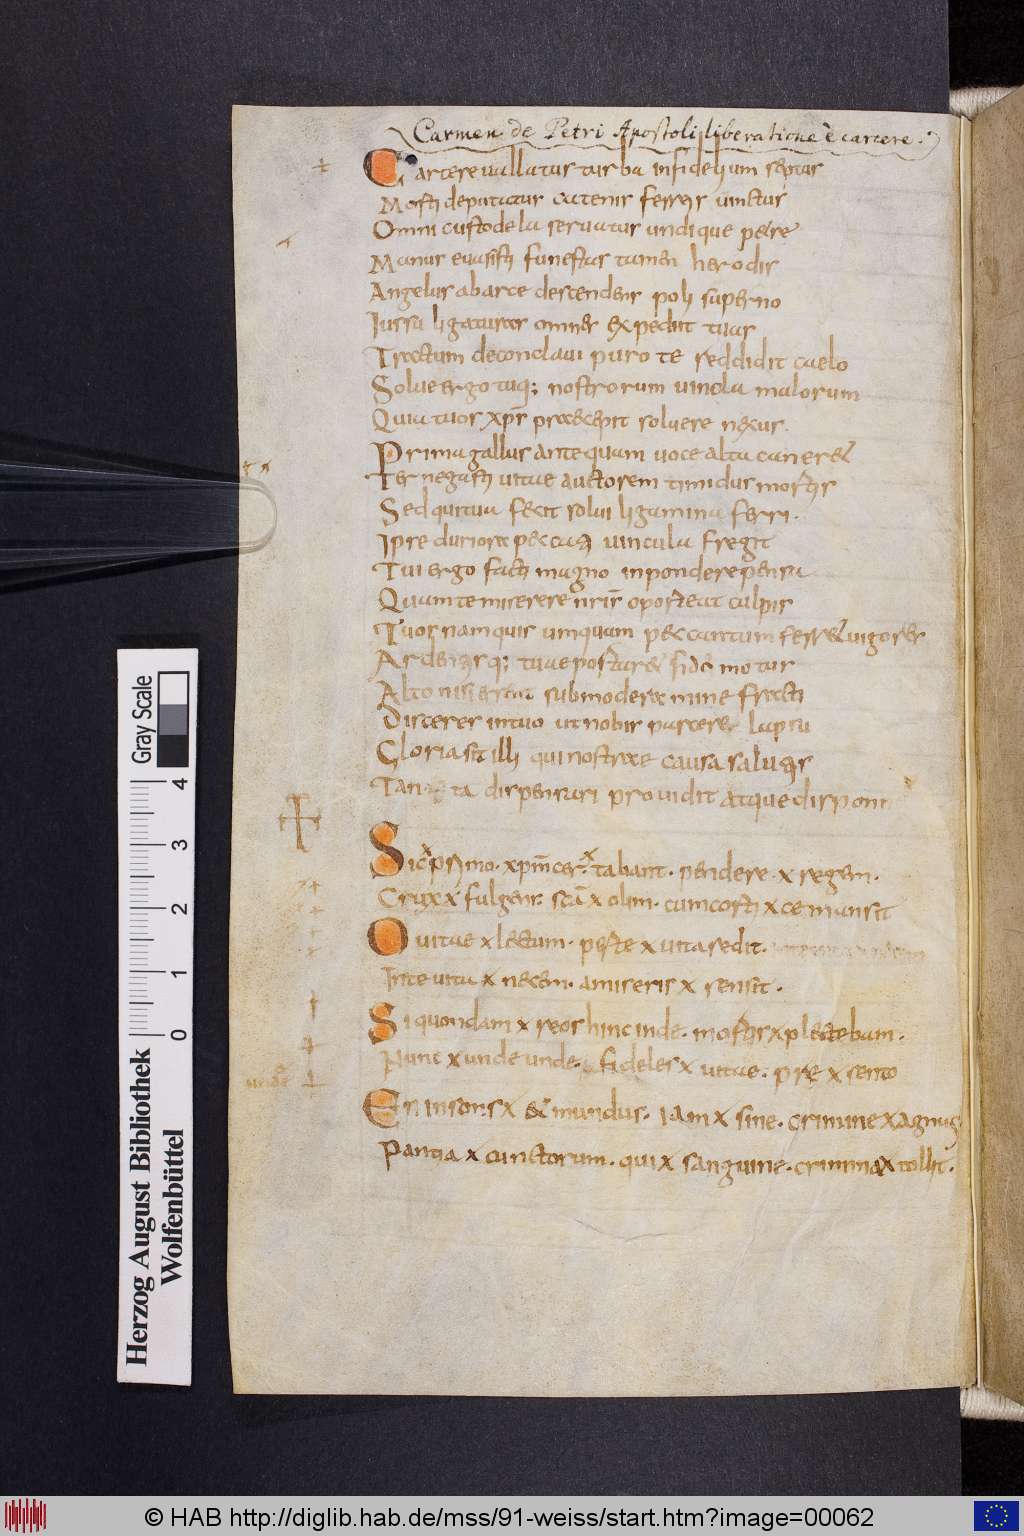 Carmen de Petri Apostoli liberatione è carcere.
Carcere uallatus turba infidelium septus
Morti deputatur catenis ferreis uinctus
Omni custodela seruatus undique petre
Manus euasisti funestas tamen herodis
Angelus ab arce descendens poli superno
Iussu ligaturas omnes expediit tuas
Tractum de conclaui puro te reddidit caelo
Solue ergo tuq; nostrorum uincla malorum
Quia tuos xps praecepit soluere nexus.
Prima gallus antequam uoce alta caneret
Ter negasti uitae auctorem timidus mortis
Sed qui tua fecit solui ligamina ferri.
Ipse duriora peccati uincula fregit
Tui ergo facti magno in pondere pensa
Quam te miserere nris oporteat culpis
Tuos nam quis umquam peccantum ferret uigores
Alto nisi submoderamine fracti
Disceres in tuo ut nobis parceres lapsu
Gloria sit illi qui nostrae causa salutis
Tanta dispensari prouidit atque disponi
Sic x pessimo. xpm cer. x tabant. pendere. x regem.
Crux x fulgens. sca x olim. cum corti x ce mansit
O uitae x lectum. peste x uita sedit.
Inte uita x necem. a miseris x sensit.
Si quondam x reos hinc inde. mortis x plectebam.
Nunc x unde unde. fideles x uitae. pre x sento
unde
En insons x et mundus. iam x sine. crimine x agnus
Pantia x cunctorum. qui x sanguine. crimina x tollit.
Herzog August Bibliothek
Wolfenbüttel
0 1 2 3 4
Gray Scale
© HAB http://diglib.hab.de/mss/91-weiss/start.htm?image=00062